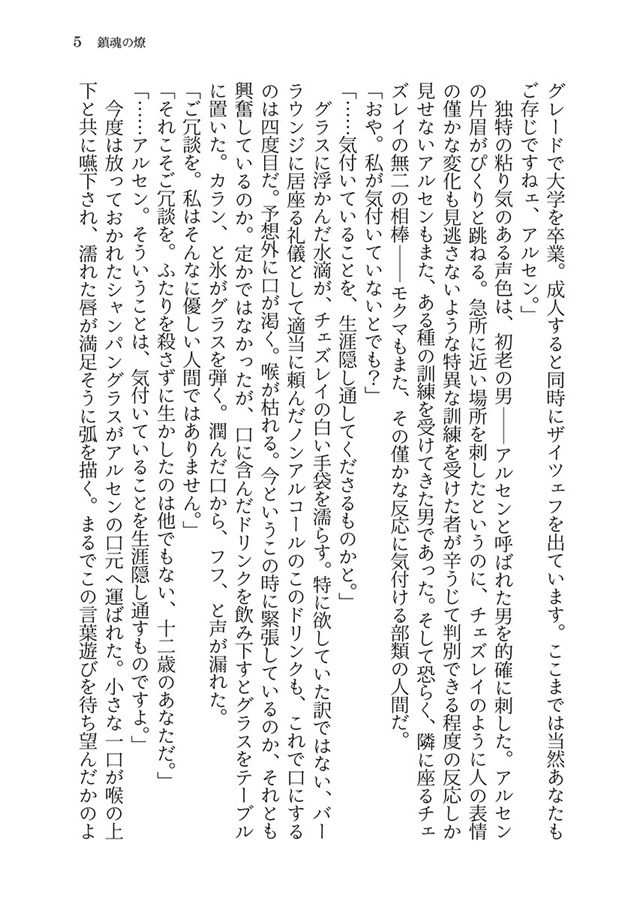 5　鎮魂の燎
グレードで大学を卒業。成人すると同時にザイツェフを出ています。ここまでは当然あなたも
ご存じですねェ、アルセン。」
　独特の粘り気のある声色は、初老の男――アルセンと呼ばれた男を的確に刺した。アルセン
の片眉がぴくりと跳ねる。急所に近い場所を刺したというのに、チェズレイのように人の表情
の僅かな変化も見逃さないような特異な訓練を受けた者が辛うじて判別できる程度の反応しか
見せないアルセンもまた、ある種の訓練を受けてきた男であった。そして恐らく、隣に座るチェ
ズレイの無二の相棒――モクマもまた、その僅かな反応に気付ける部類の人間だ。
「おや。私が気付いていないとでも？」
「……気付いていることを、生涯隠し通してくださるものかと。」
　グラスに浮かんだ水滴が、チェズレイの白い手袋を濡らす。特に欲していた訳ではない、バー
ラウンジに居座る礼儀として適当に頼んだノンアルコールのこのドリンクも、これで口にする
のは四度目だ。予想外に口が渇く。喉が枯れる。今というこの時に緊張しているのか、それとも
興奮しているのか。定かではなかったが、口に含んだドリンクを飲み下すとグラスをテーブル
に置いた。カラン、と氷がグラスを弾く。潤んだ口から、フフ、と声が漏れた。
「ご冗談を。私はそんなに優しい人間ではありません。」
「それこそご冗談を。ふたりを殺さずに生かしたのは他でもない、十二歳のあなただ。」
「……アルセン。そういうことは、気付いていることを生涯隠し通すものですよ。」
　今度は放っておかれたシャンパングラスがアルセンの口元へ運ばれた。小さな一口が喉の上
下と共に嚥下され、濡れた唇が満足そうに弧を描く。まるでこの言葉遊びを待ち望んだかのよ